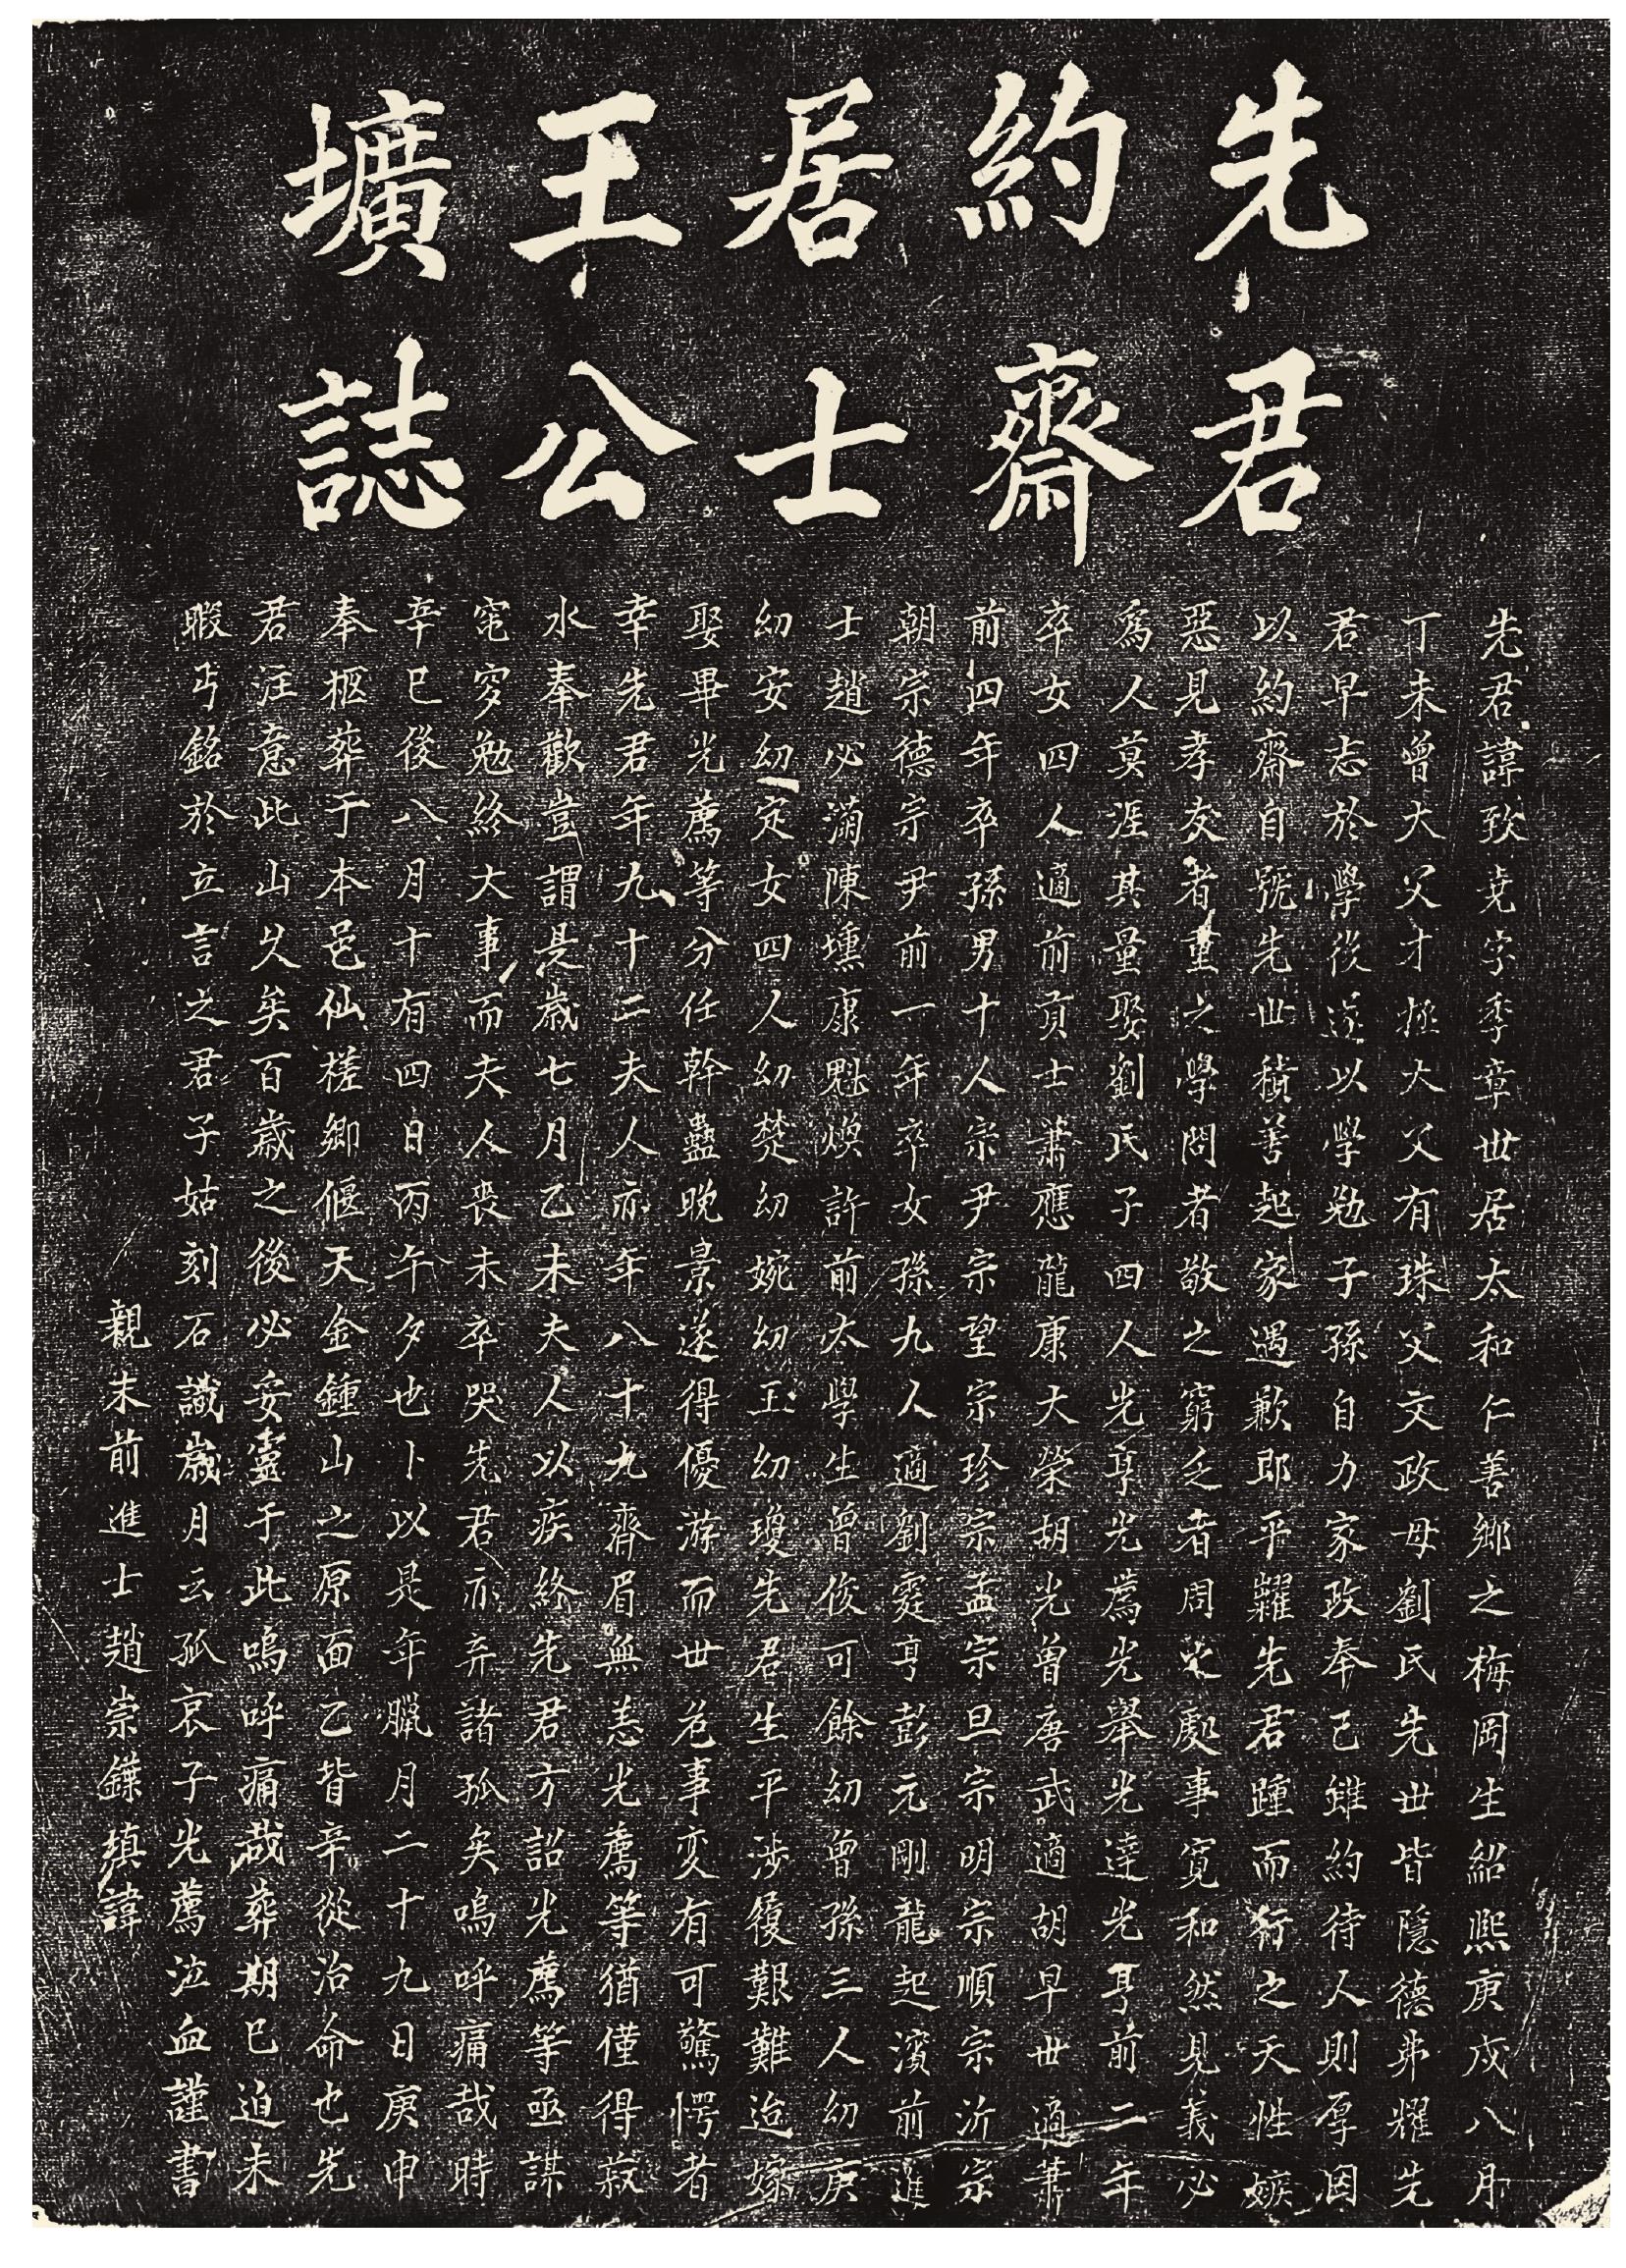 先君
約齋
居士
王公
壙誌
先君諱致堯字季章世居太和仁善鄉之梅岡生紹熙庚戌八月
丁未曾大父才極大父有珠父文政母劉氏先世皆隱德弟耀先
君早志於學後遂以學勉子孫自力家政奉己雖約待人則厚因
以約齋自號先世積善起家遇歉即平糶先君踵而行之天性嫉
惡見孝友者重之學問者敬之窮乏者周之處事寬和然見義必
爲人莫涯其量娶劉氏子四人光亨光薦光舉光達光亨前二年
卒女四人適前貢士蕭應龍康大榮胡光曾唐武適胡早世適蕭
前四年卒孫男十人宗尹宗望宗珍宗孟宗旦宗明宗順宗沂宗
朝宗德宗尹前一年卒女孫九人適劉霆亨彭元剛龍起濱前進
士趙必滿陳壎康魁煥許前太學生曾俊可餘幼曾孫三人幼庚
幼安幼定女四人幼椘幼婉幼玉幼瓊先君生平涉履艱難迨嫁
娶畢光薦等分任幹蠱晚景遂得優游而世危事变有可驚愕者
幸先君年九十二夫人亦年八十九齊眉無恙光薦等猶僅得菽
水奉歡豈謂是歲七月乙未夫人以疾終先君方詔光薦等亟謀
窀穸勉終大事而夫人喪未卒哭先君亦弃諸孤矣嗚呼痛哉時
辛巳後八月十有四日丙午夕也卜以是年臘月二十九日庚申
奉柩葬于本邑仙槎鄉偃天金鍾山之原面乙皆辛從治命也先
君注意此山久矣百歲之後必妥靈于此嗚呼痛哉葬期已迫未
暇丐銘於立言之君子姑刻石識歲月云孤哀子光薦泣血謹書
親末前進士趙崇鏷填諱